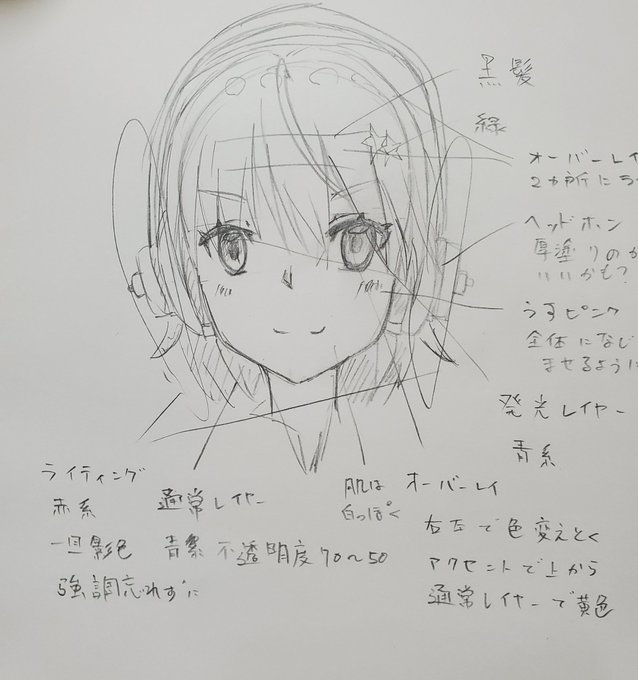 黒髪
緑
オーバーレイ
2カ所に
ヘッドホン
厚塗りのが
いいかも?
うすピンク
全体になじ
ませるように
発光レイヤー
青系
ライティング
赤系
一旦影色
強調忘れずに
通常レイヤー
青系 不透明度70〜50
肌は
白っぽく
オーバーレイ
右左で色変えとく
アクセントで上から
通常レイヤーで黄色